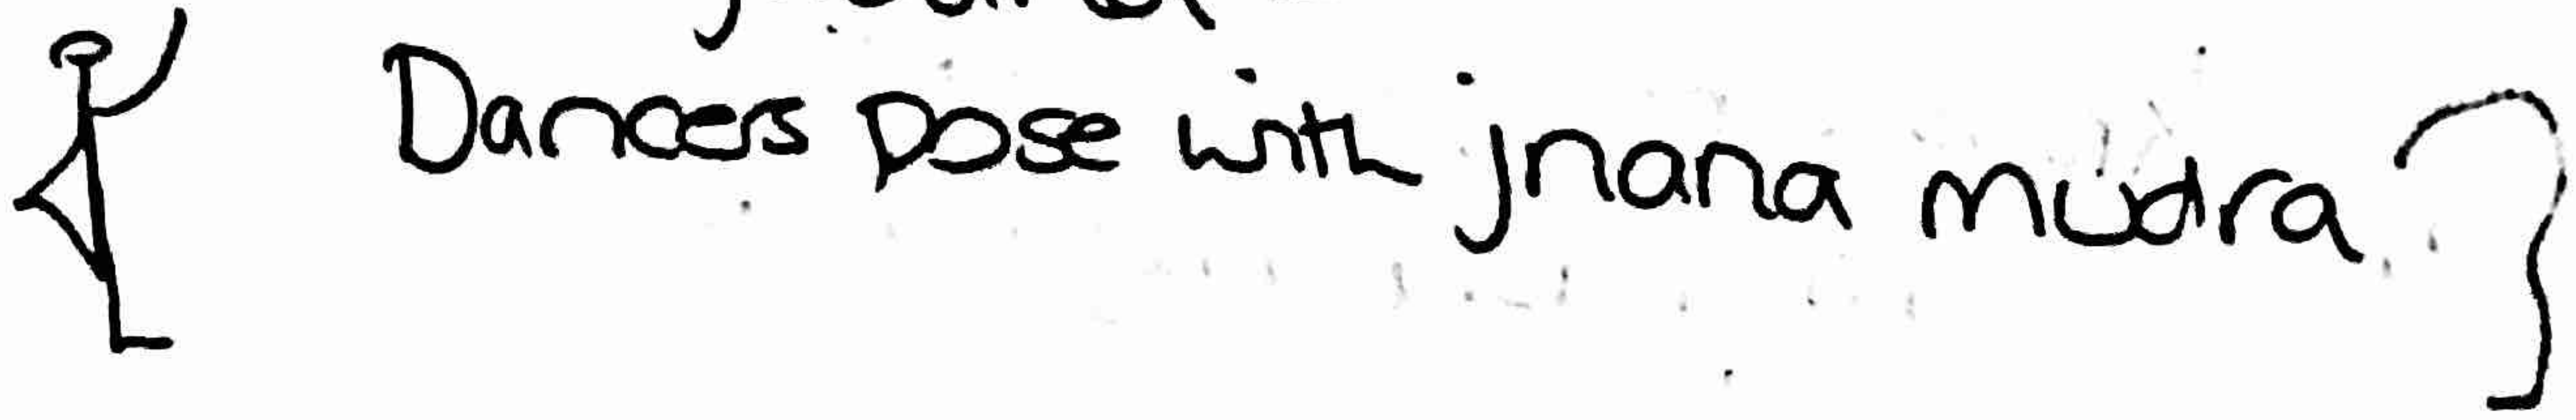 Dancers pose with jnana mudra